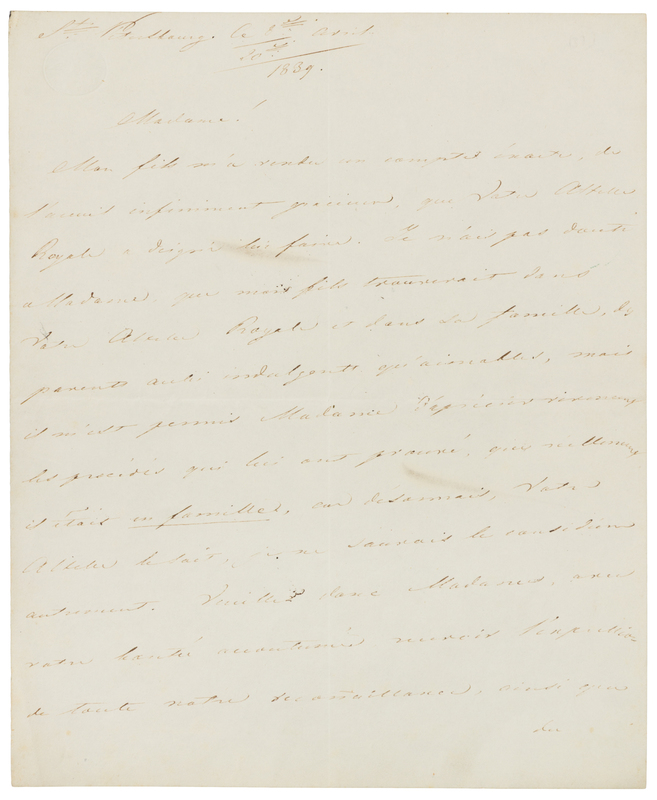 St. Petersbourg. le 8 Avril.
20
1839.
Madame!
Mon fils m'a rendu un compte éxacte, de
l'acueil infiniment gracieux, que Votre Altesse
Royale a daigné lui faire. Je n'ais pas douté
Madame, que mon fils trouverait dans
Votre Altesse Royale et dans Sa famille, des
parents aussi indulgents qu'aimables, mais
il m'est permis Madame d'aprécier vivement
les procédés qui lui ont prouvé, que réellement
il était en famille, car désormais, Votre
Altesse le sait, je ne saurais le considérer
autrement. Veuillez donc Madame, avec
votre bonté accoutumée recevoir l'expression
de toute notre reconnaissance, ainsi que
de